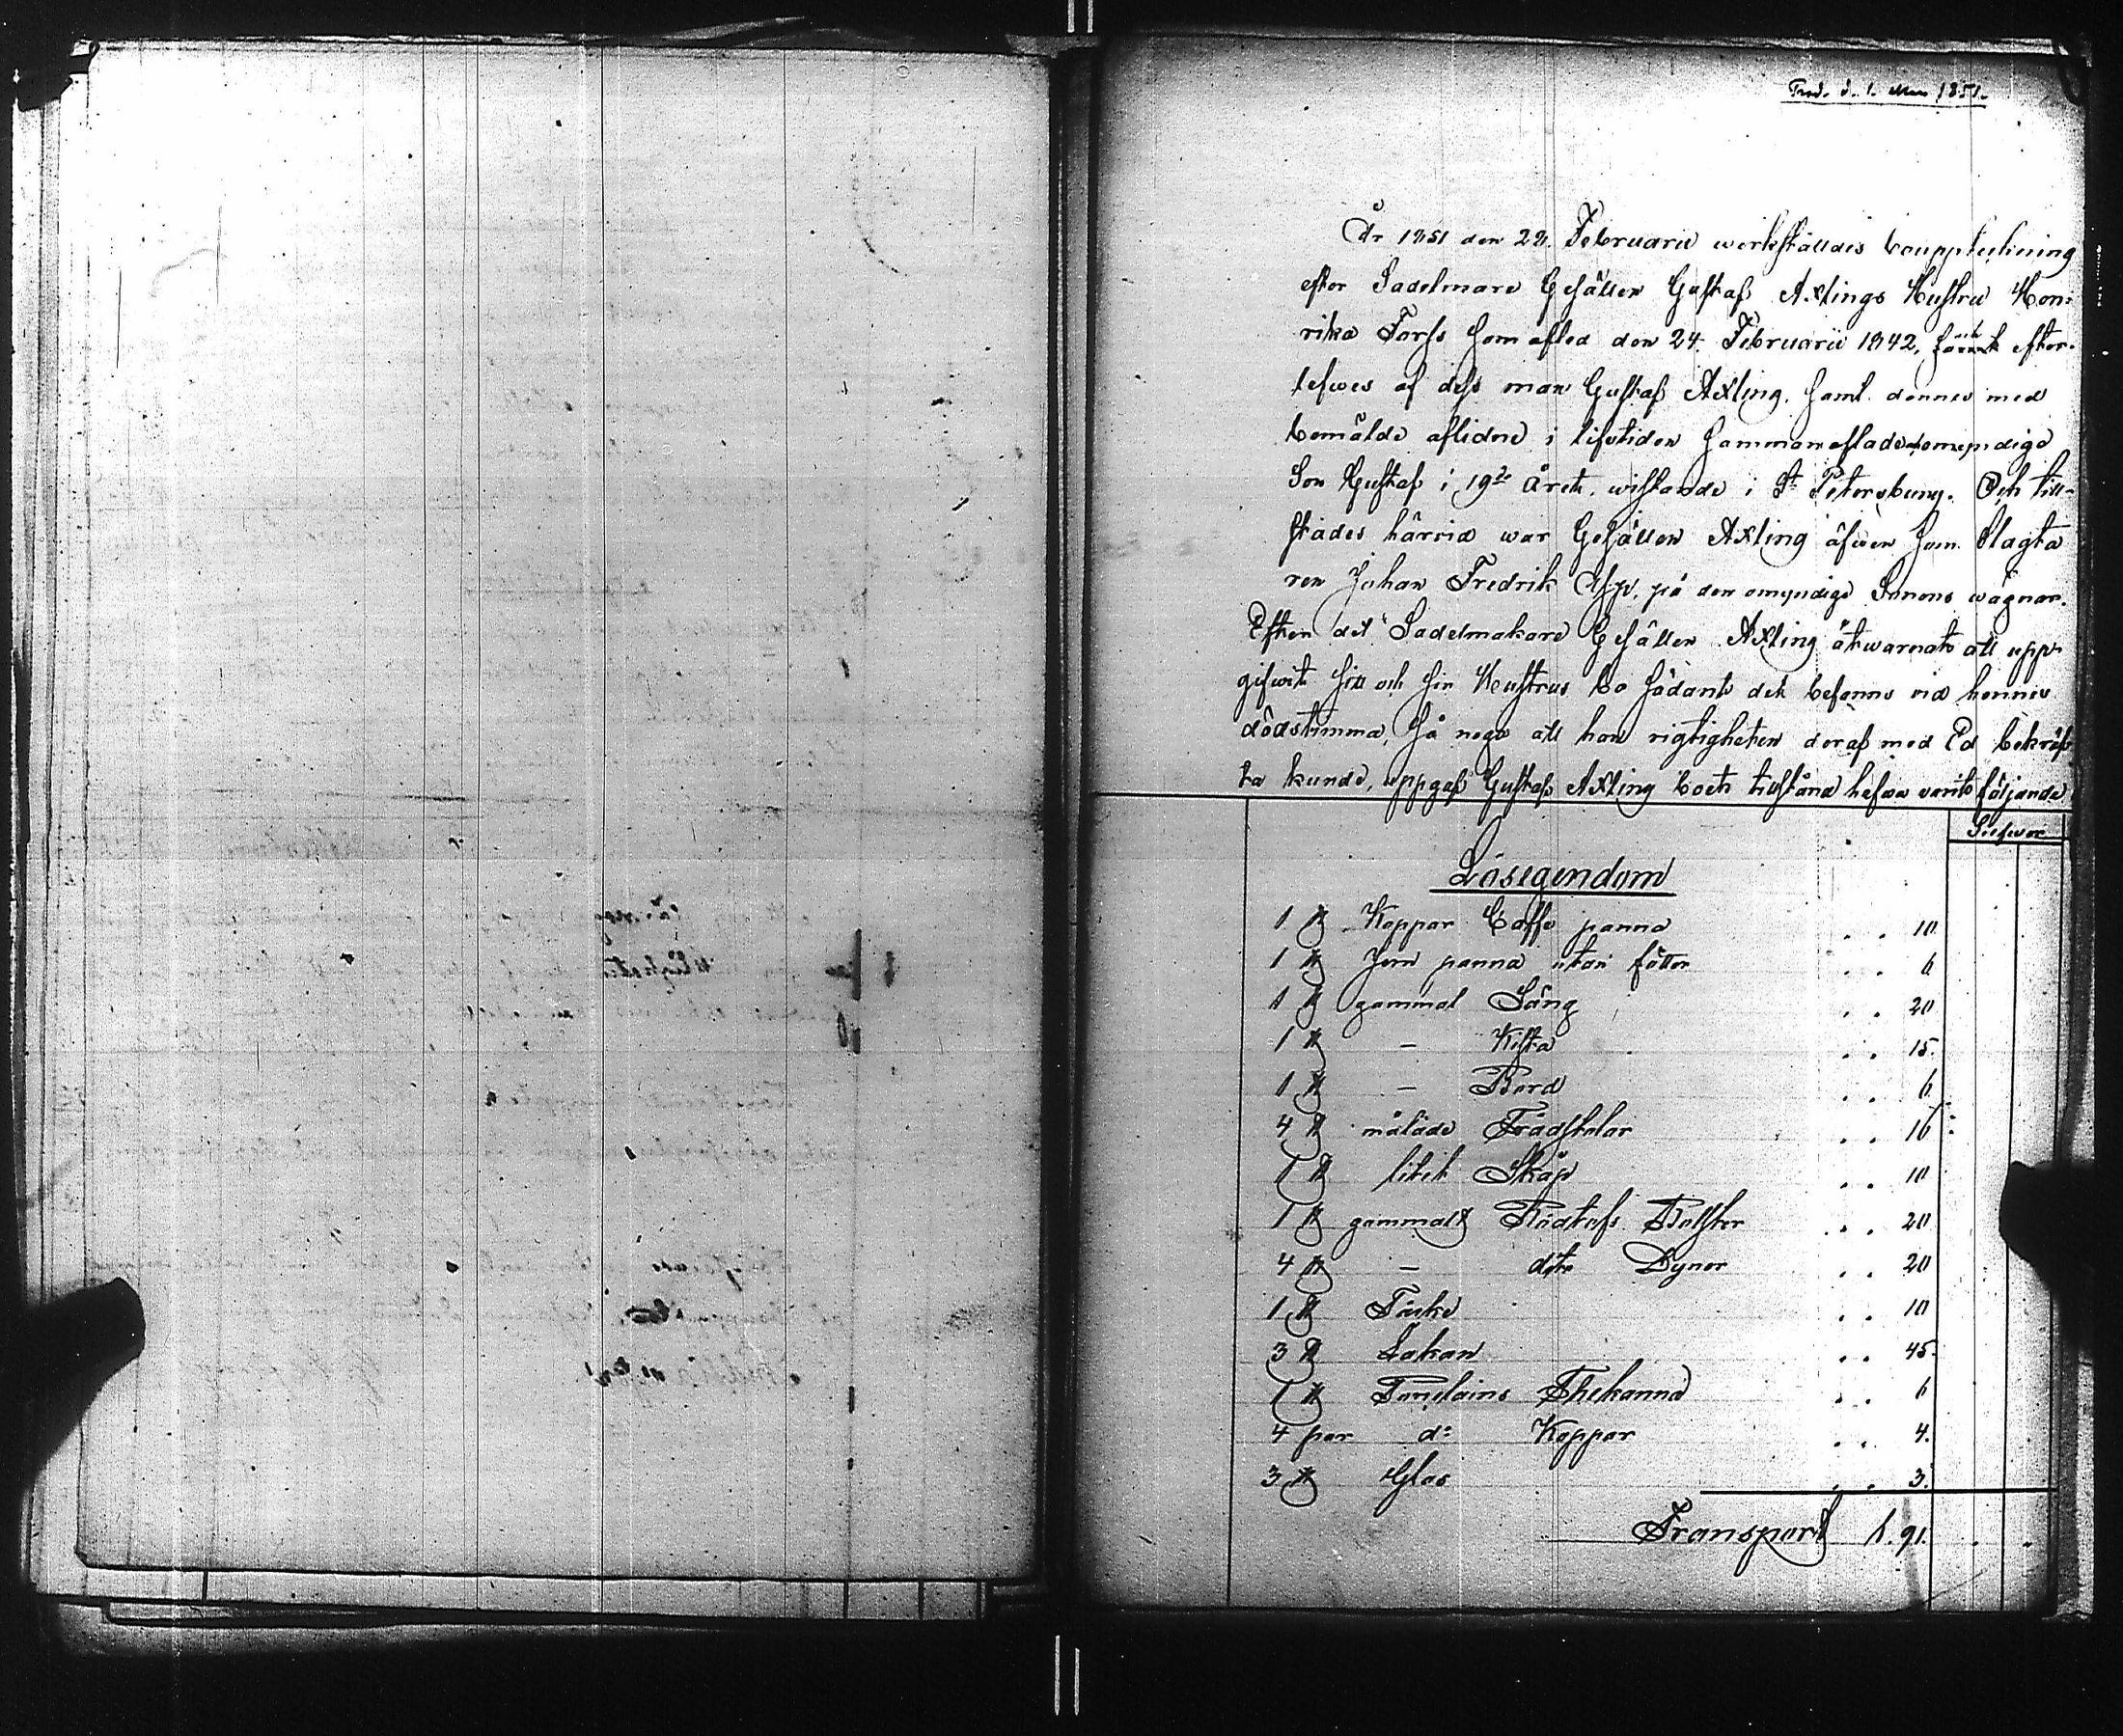 Prod. d. 1. Mars 1851.
År 1851 den 28. Februarii werkställdes bouppteckning
efter Sadelmare Gesällen Gustaf Axlings Hustru Hen-
rika Forss som afled den 24. Februarii 1842, och efter-
lefwes af dess man Gustaf Axling, samt dennes med
bemälde aflidne i lifstiden sammanaflade omyndige
Son Gustaf i 19de året, wistande i St Petersburg. Och till-
städes härvid war Gesällen Axling äfwen som Slagta
ren Johan Fredrik Asp, på den omyndige Sonens wägnar.
Efter det Sadelmakare Gesällen Axling åtwarnats att upp-
gifwit sitt och sin Hustrus bo sådant det befanns vid hennes
dödstimma, så noga att han rigtigheten deraf med Ed bekräf
ta kunde, uppgaf Gustaf Axling boets tillstånd hafwa varit följande
Silfwer
Lösegendom
1 st Koppar Caffe panna . . 10
1 st Jern panna utan fötter . . 6
1 st gammal Säng . . 20
1 st – Kista . . 15.
1 st – Bord . . 6
4 st målade Trädstolar . . 16
1 st litet Skåp . . 10
1 st gammalt Bolster . . 20
4 st – dito Dynor . . 20
1 st Täcke . . 10
3 st Lakan . . 45.
1 st Porselains Thekanna . . 6
4 par do Koppar . . 4.
3 st Glas . . 3.
Transport 1. 91.